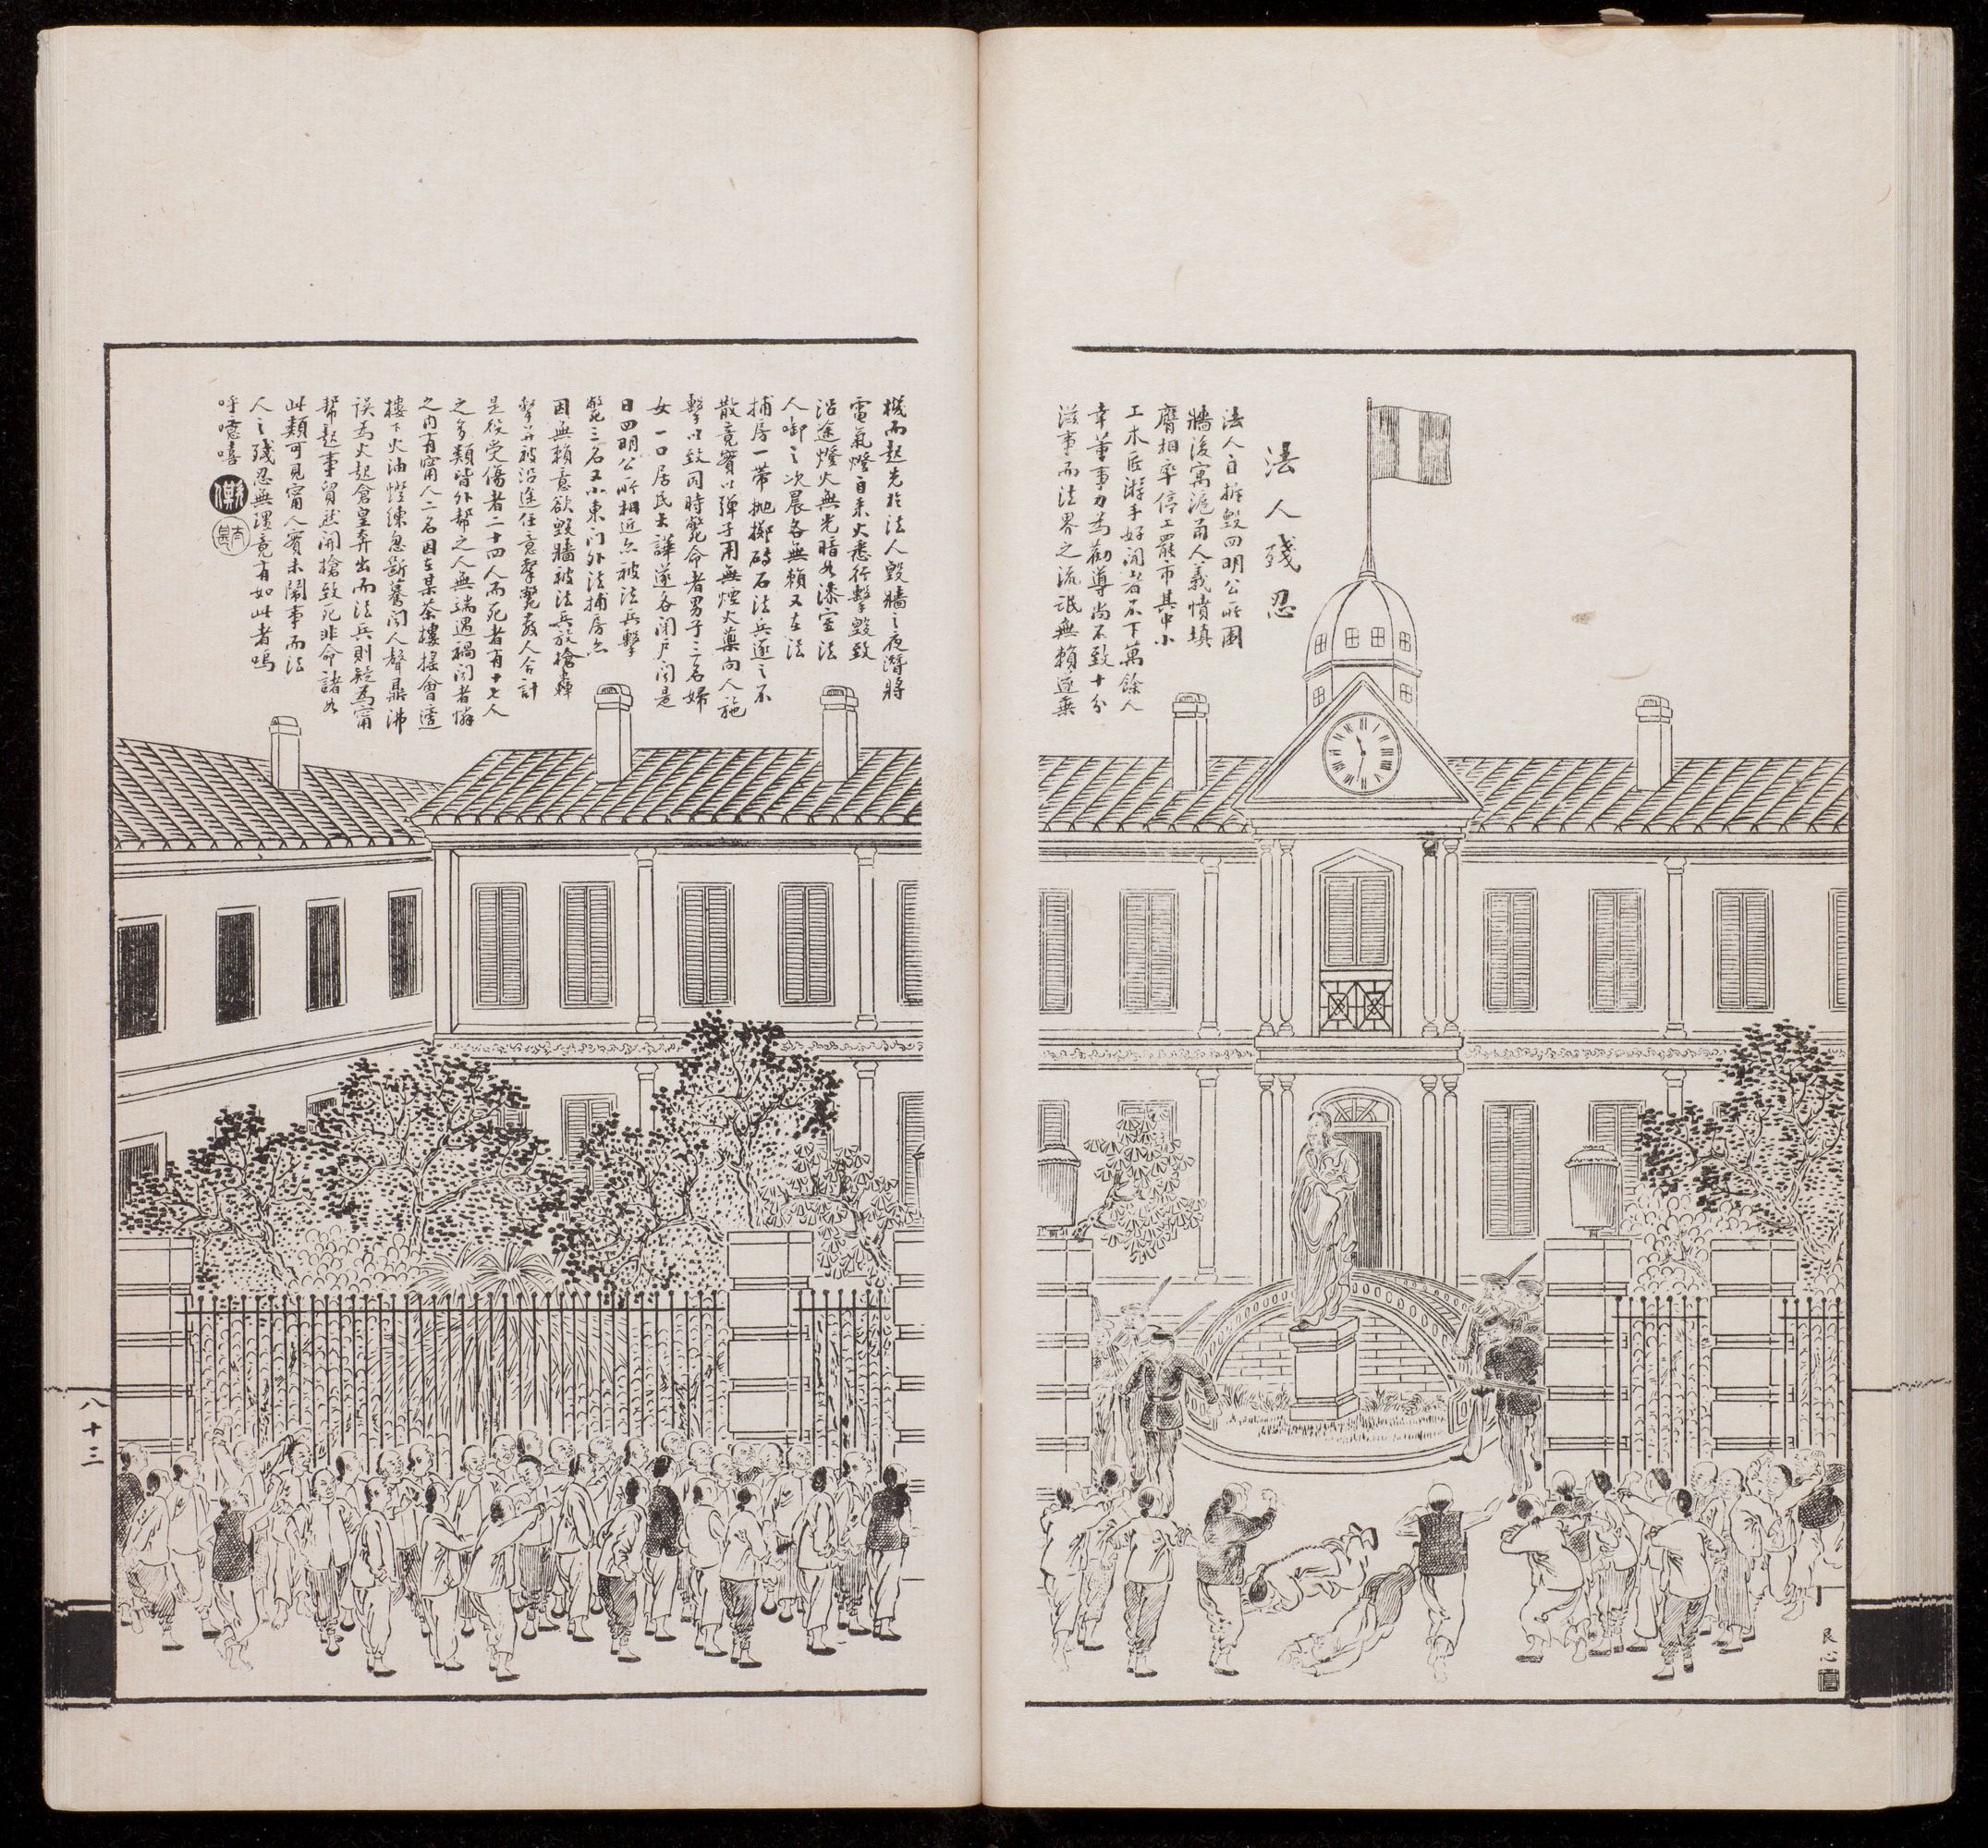 法人殘忍
法人自拆毀四明公所圍
牆後寓滬甬人義憤填
膺相率停工罷市其中小
工木匠游手好閒者不下萬餘人
幸董事力為勸導尚不致十分
滋事而法界之流氓無賴遂乘
機而起先於法人毀牆之夜潛將
電氣燈自來火悉行擊毀致
沿途燈火無光暗如漆室法
人啣之次晨各無賴又在法
捕房一帶拋擲磚石法兵逐之不
散竟實以彈子用無煙火藥向人施
擊以致同時斃命者男子三名婦
女一口居民大譁遂各閉戶閧是
日四明公所相近亦被法兵擊
斃三名又小東門外法捕房亦
因無賴意欲毀牆被法兵放槍轟
擊并被沿途任意擊斃數人合計
是役受傷者二十四人而死者有十七人
之多類皆外幫之人無端遇禍聞者憐
之內有甯人二名因在某茶樓搖會適
樓下火油燈練忽斷驀聞人聲鼎沸
誤為火起倉皇奔出而法兵則疑為甯
幫起事貿然開槍致死非命諸如
此類可見甯人實未鬧事而法
人之殘忍無理竟有如此者嗚
呼噫嘻
艮心
八十三